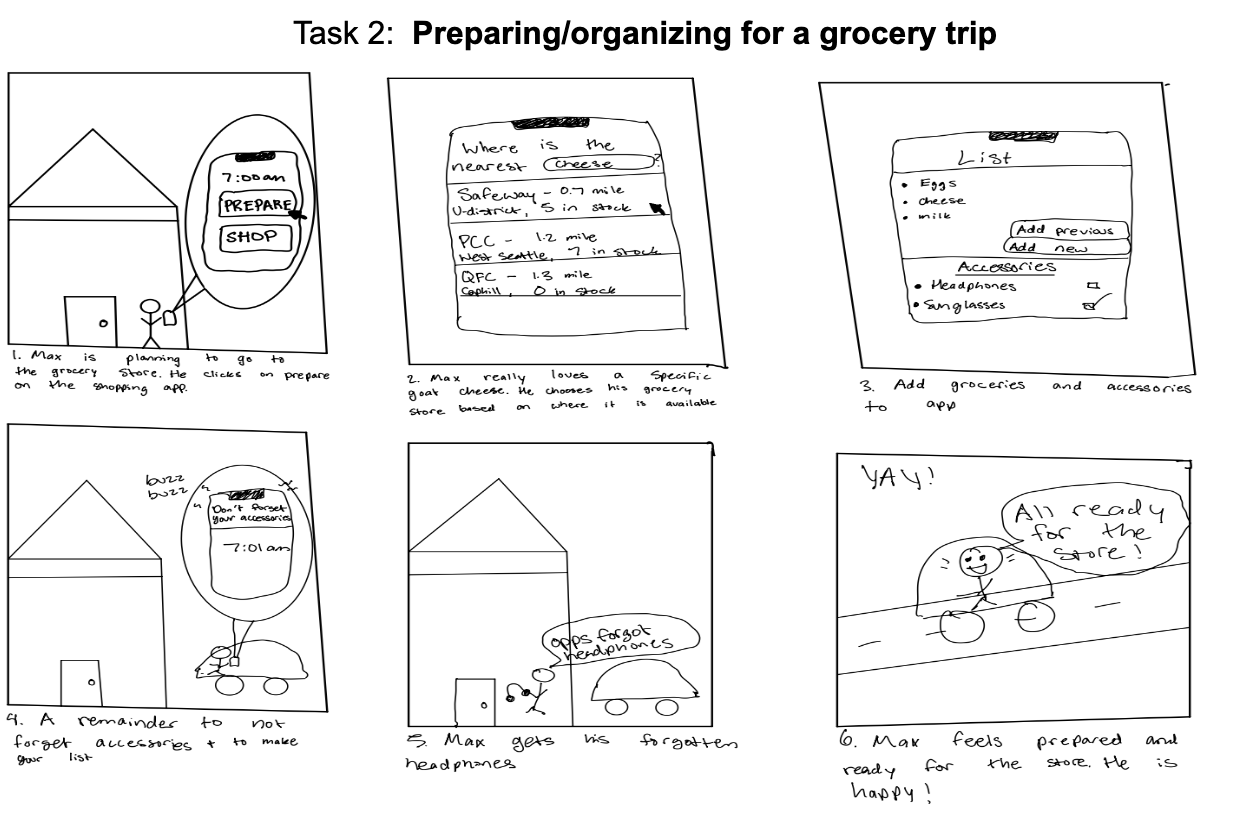 Task 2: Preparing/organizing for a grocery trip
7:00am
PREPARE
SHOP
1. Max is planning to go to
the grocery store. He clicks on prepare
on the shopping app.
Where is the
nearest cheese?
Safeway - 0.7 mile
U-district, 5 in stock
PCC - 1.2 mile
West Seattle, 7 in stock
QFC - 1.3 mile
Caphill, 0 in stock
2. Max really loves a specific
goat cheese. He chooses his grocery
store based on where it is available
List
• Eggs
• cheese
• milk
Add previous
Add new
Accessories
• Headphones
• Sunglasses
3. Add groceries and accessories
to app
buzz
buzz
Don't forget
your accessories
7:01am
4. A remainder to not
forget accessories + to make
your list
opps forgot
headphones
5. Max gets his forgotten
headphones
YAY!
All ready
for the
store!
6. Max feels prepared and
ready for the store. He is
happy!